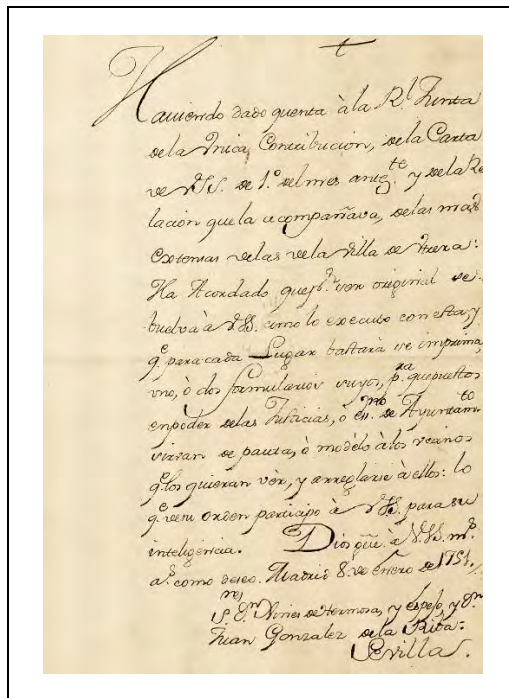 Haviendo dado quenta à la Rl. Junta
dela Vnica Contribución, dela Carta
de VSS. de 1º. del mes antezte. y dela Re
lación que la acompañava, delas mas
extensas delas dela Villa de
Ha Acordado que pr. ser original se
buelva à VSS. como lo executo con esta, y
qe. para cada Lugar bastará se imprima,
vno, ò dos formularios suyos, para. que puestos
en poder delas Justicias, ò esno. de Ayuntamto.
sirvan de pauta, ò modélo à los vecinos
qe. los quieran vèr, y arreglarse à ellos: lo
qe. de su orden participo à VSS. para su
inteligencia. Dios gue. à VSS. ms.
as. como deseo. Madrid 8. de Enero de 1751.
Sres. Dn. Nicies de Hermosa, y espejo, y Dn.
Juan Gonzalez dela Riba.
Sevilla.